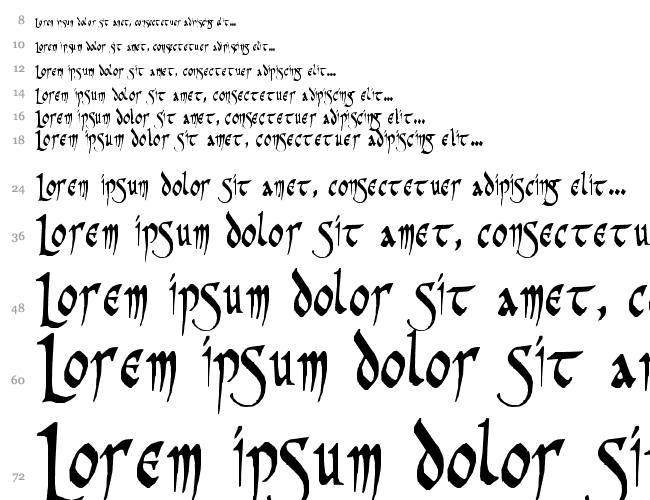 8 Lorem ipsum dolor sit amet, consectetuer adipiscing elit...
10 Lorem ipsum dolor sit amet, consectetuer adipiscing elit...
12 Lorem ipsum dolor sit amet, consectetuer adipiscing elit...
14 Lorem ipsum dolor sit amet, consectetuer adipiscing elit...
16 Lorem ipsum dolor sit amet, consectetuer adipiscing elit...
18 Lorem ipsum dolor sit amet, consectetuer adipiscing elit...
24 Lorem ipsum dolor sit amet, consectetuer adipiscing elit...
36 Lorem ipsum dolor sit amet, consectetu
48 Lorem ipsum dolor sit amet, c
60 Lorem ipsum dolor sit a
72 Lorem ipsum dolor si